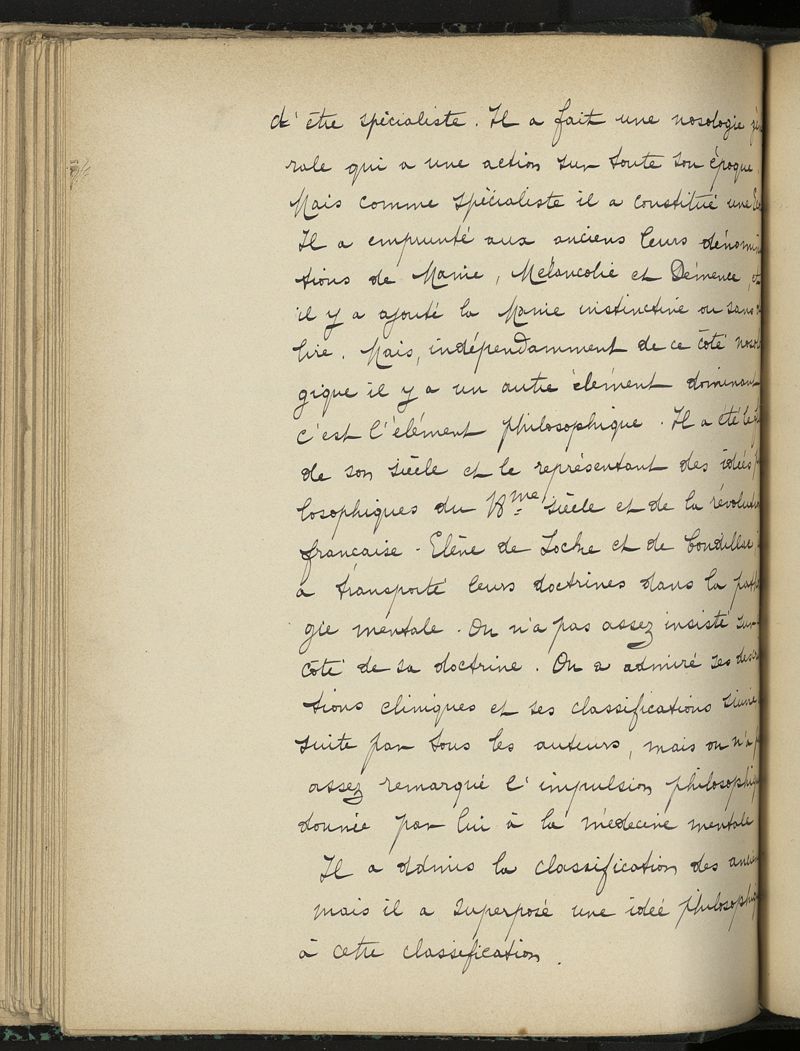 d'être spécialiste. Il a fait une nosologie gé
rale qui a une action sur toute son époque.
Mais comme spécialiste il a constitué une
Il a emprunté aux anciens leurs dénomin
tions de Manie, Mélancolie et Démence, et
il y a ajouté la Manie instinctive ou sans
lire. Mais, indépendamment de ce côté nosol
gique il y a un autre élément dominant
c'est l'élément philosophique. Il a été le
de son siècle et le représentant des idées
losophiques du 18me siècle et de la révolution
française. Elève de Locke et de Condillac
a transporté leurs doctrines dans la path
gie mentale. On n'a pas assez insisté sur
côté de sa doctrine. On a admiré ses descri
tions cliniques et ses classifications suivie
suite par tous les auteurs, mais on n'a p
assez remarqué l'impulsion philosophiq
donnée par lui à la médecine mentale
Il a admis la classification des ancien
mais il a superposé une idée philosophiq
à cette classification.